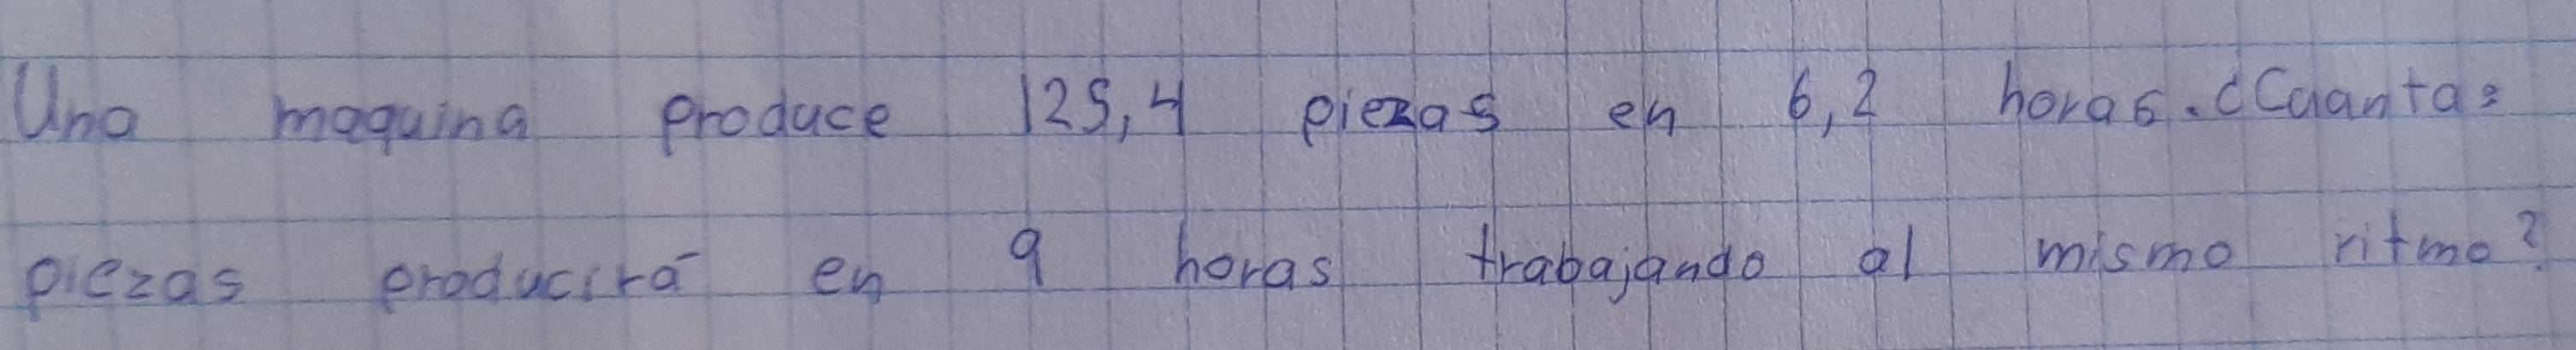 Una maquina produce 125,4 piezas en 6,2 horas. ¿Cuantas
piezas producirá en 9 horas trabajando al mismo ritmo?